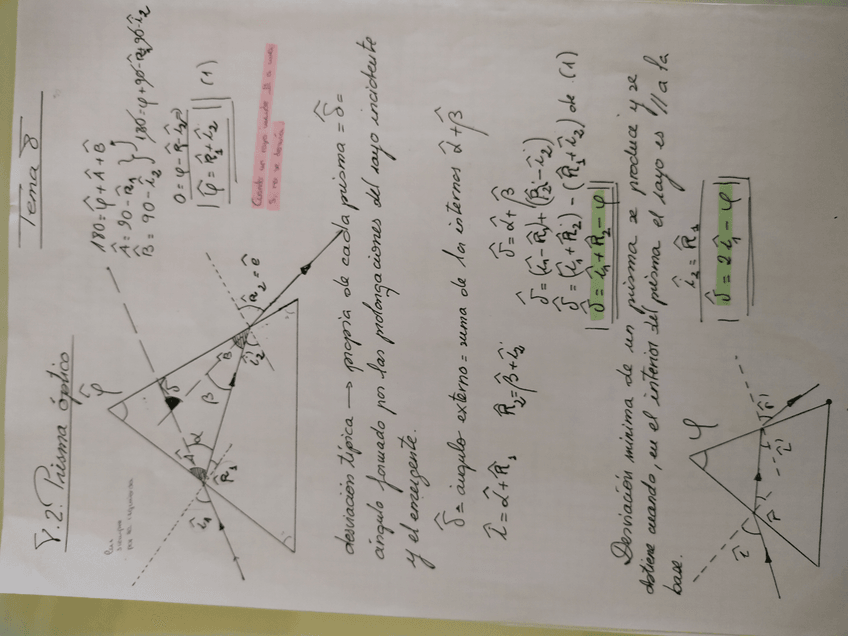 Tema 8
8.2. Prisma óptico
180 = φ̂ + Â + B̂
Â = 90 - R̂1
B̂ = 90 - î2
180 = φ + 90 - R̂1 + 90 - î2
0 = φ - R̂ - î2
φ̂ = R̂1 + î2 (1)
φ̂
î1
Â
α
R̂1
δ
β
B
î2
R̂2 = ê
desviación típica → propia de cada prisma = δ̂ =
ángulo formado por las prolongaciones del rayo incidente
y el emergente.
δ̂ = ángulo externo = suma de los internos α̂ + β̂
î = α̂ + R̂1
R̂2 = β̂ + î2
δ̂ = α̂ + β̂
δ̂ = (î1 - R̂1) + (R̂2 - î2)
δ̂ = (î1 + R̂2) - (R̂1 + î2) de (1)
δ̂ = î1 + R̂2 - φ
Desviación mínima de un prisma se produce y se
obtiene cuando, en el interior del prisma el rayo es // a la
base.
î2 = R̂1
δ̂ = 2î1 - φ̂
φ
î
r̂
î'
r̂'